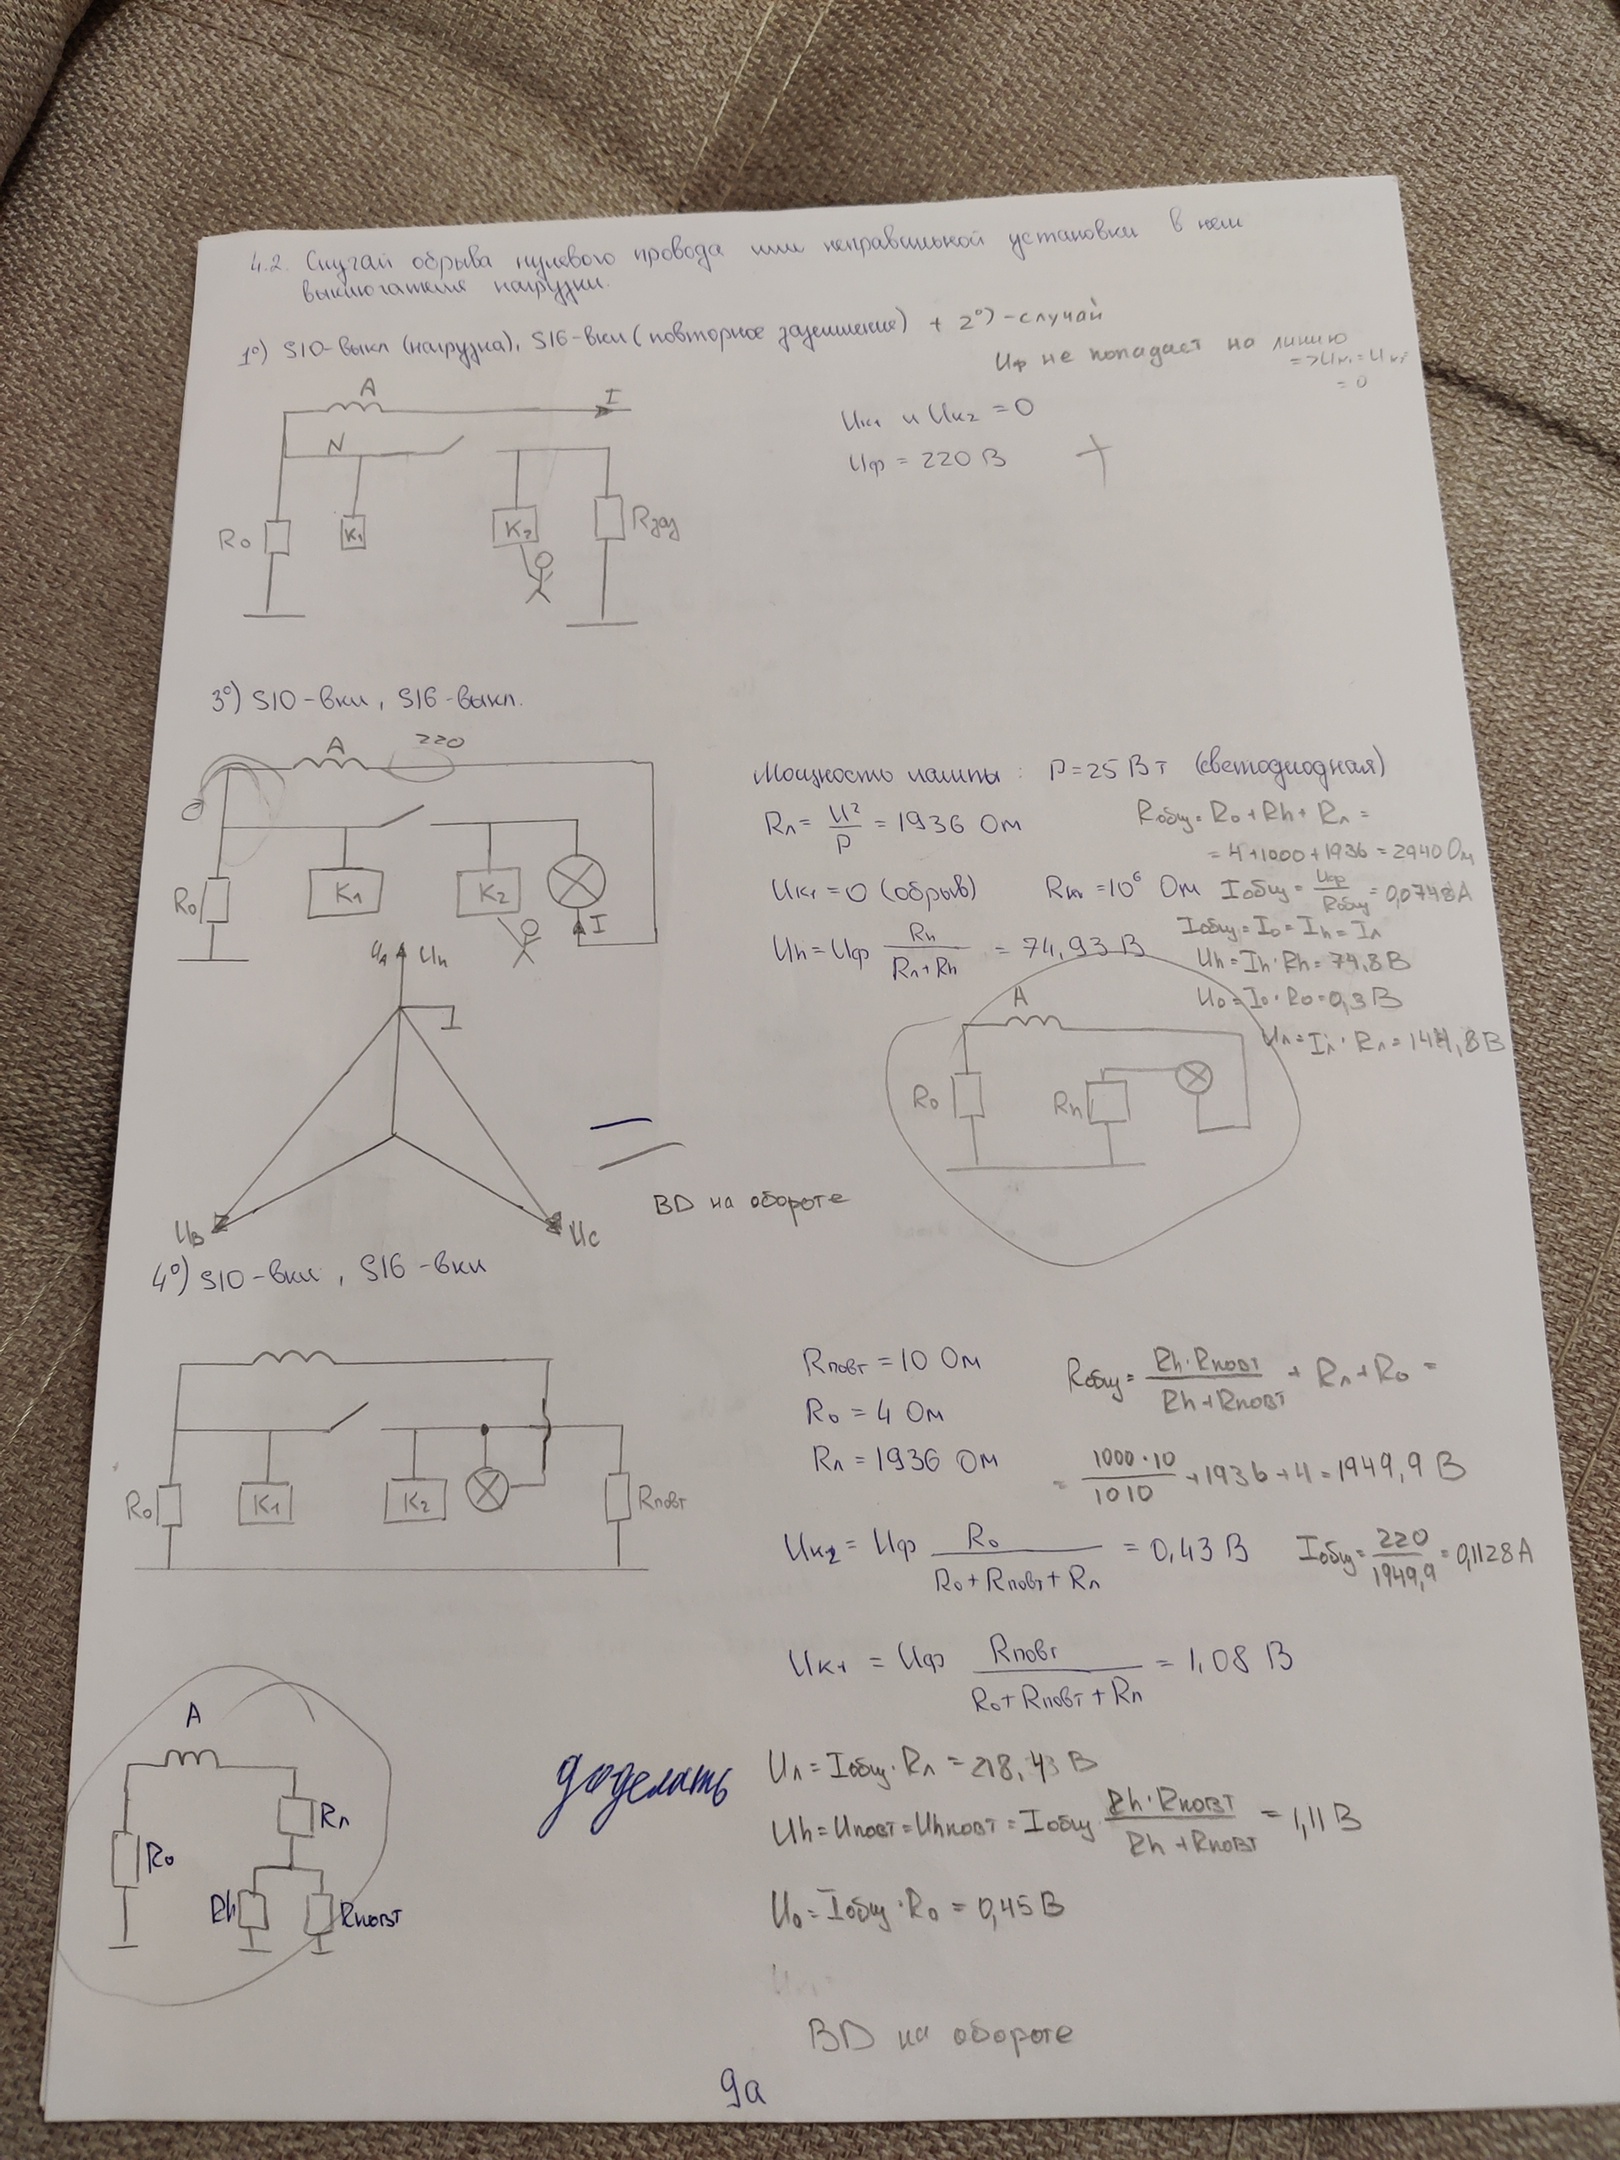 4.2. Случай обрыва нулевого провода или неправильной установки в нем
выключателя нагрузки.
1°) S10-выкл (нагрузка), S16-вкл (повторное заземление) + 2°)-случай
Uф не попадает на линию
=> Uк1 = Uк2
= 0
A
I
Uк1 и Uк2 = 0
N
Uф = 220 В
R0
K1
K2
Rзаз
3°) S10-вкл, S16-выкл.
A
220
Мощность лампы: P=25 Вт (светодиодная)
Rл = U²/P = 1936 Ом
Rобщ = R0 + Rh + Rл =
= 4+1000+1936 = 2940 Ом
Uк1 = 0 (обрыв)
= 10⁶ Ом
Iобщ = Uф/Rобщ = 0,0748 А
R0
K1
K2
I
Iобщ = I0 = Ih = Iл
Uh = Uф Rh/(Rл+Rh) = 74,93 В
Uh = Ih·Rh = 74,8 В
U0 = I0·R0 = 0,3 В
Uл = Iл·Rл = 144,8 В
UA
Uh
A
R0
Rh
UB
UC
BD на обороте
4°) S10-вкл, S16-вкл
Rповт = 10 Ом
Rобщ = Rh·Rповт/(Rh+Rповт) + Rл + R0 =
R0 = 4 Ом
Rл = 1936 Ом
= 1000·10/1010 + 1936 + 4 = 1949,9 В
R0
K1
K2
Rповт
Uк2 = Uф R0/(R0+Rповт+Rл) = 0,43 В
Iобщ = 220/1949,9 = 0,1128 А
Uк1 = Uф Rповт/(R0+Rповт+Rл) = 1,08 В
A
Rл
R0
Rh
Rповт
доделать
Uл = Iобщ·Rл = 218,43 В
Uh = Uповт = Uhповт = Iобщ·Rh·Rповт/(Rh+Rповт) = 1,11 В
U0 = Iобщ·R0 = 0,45 В
BD на обороте
9а